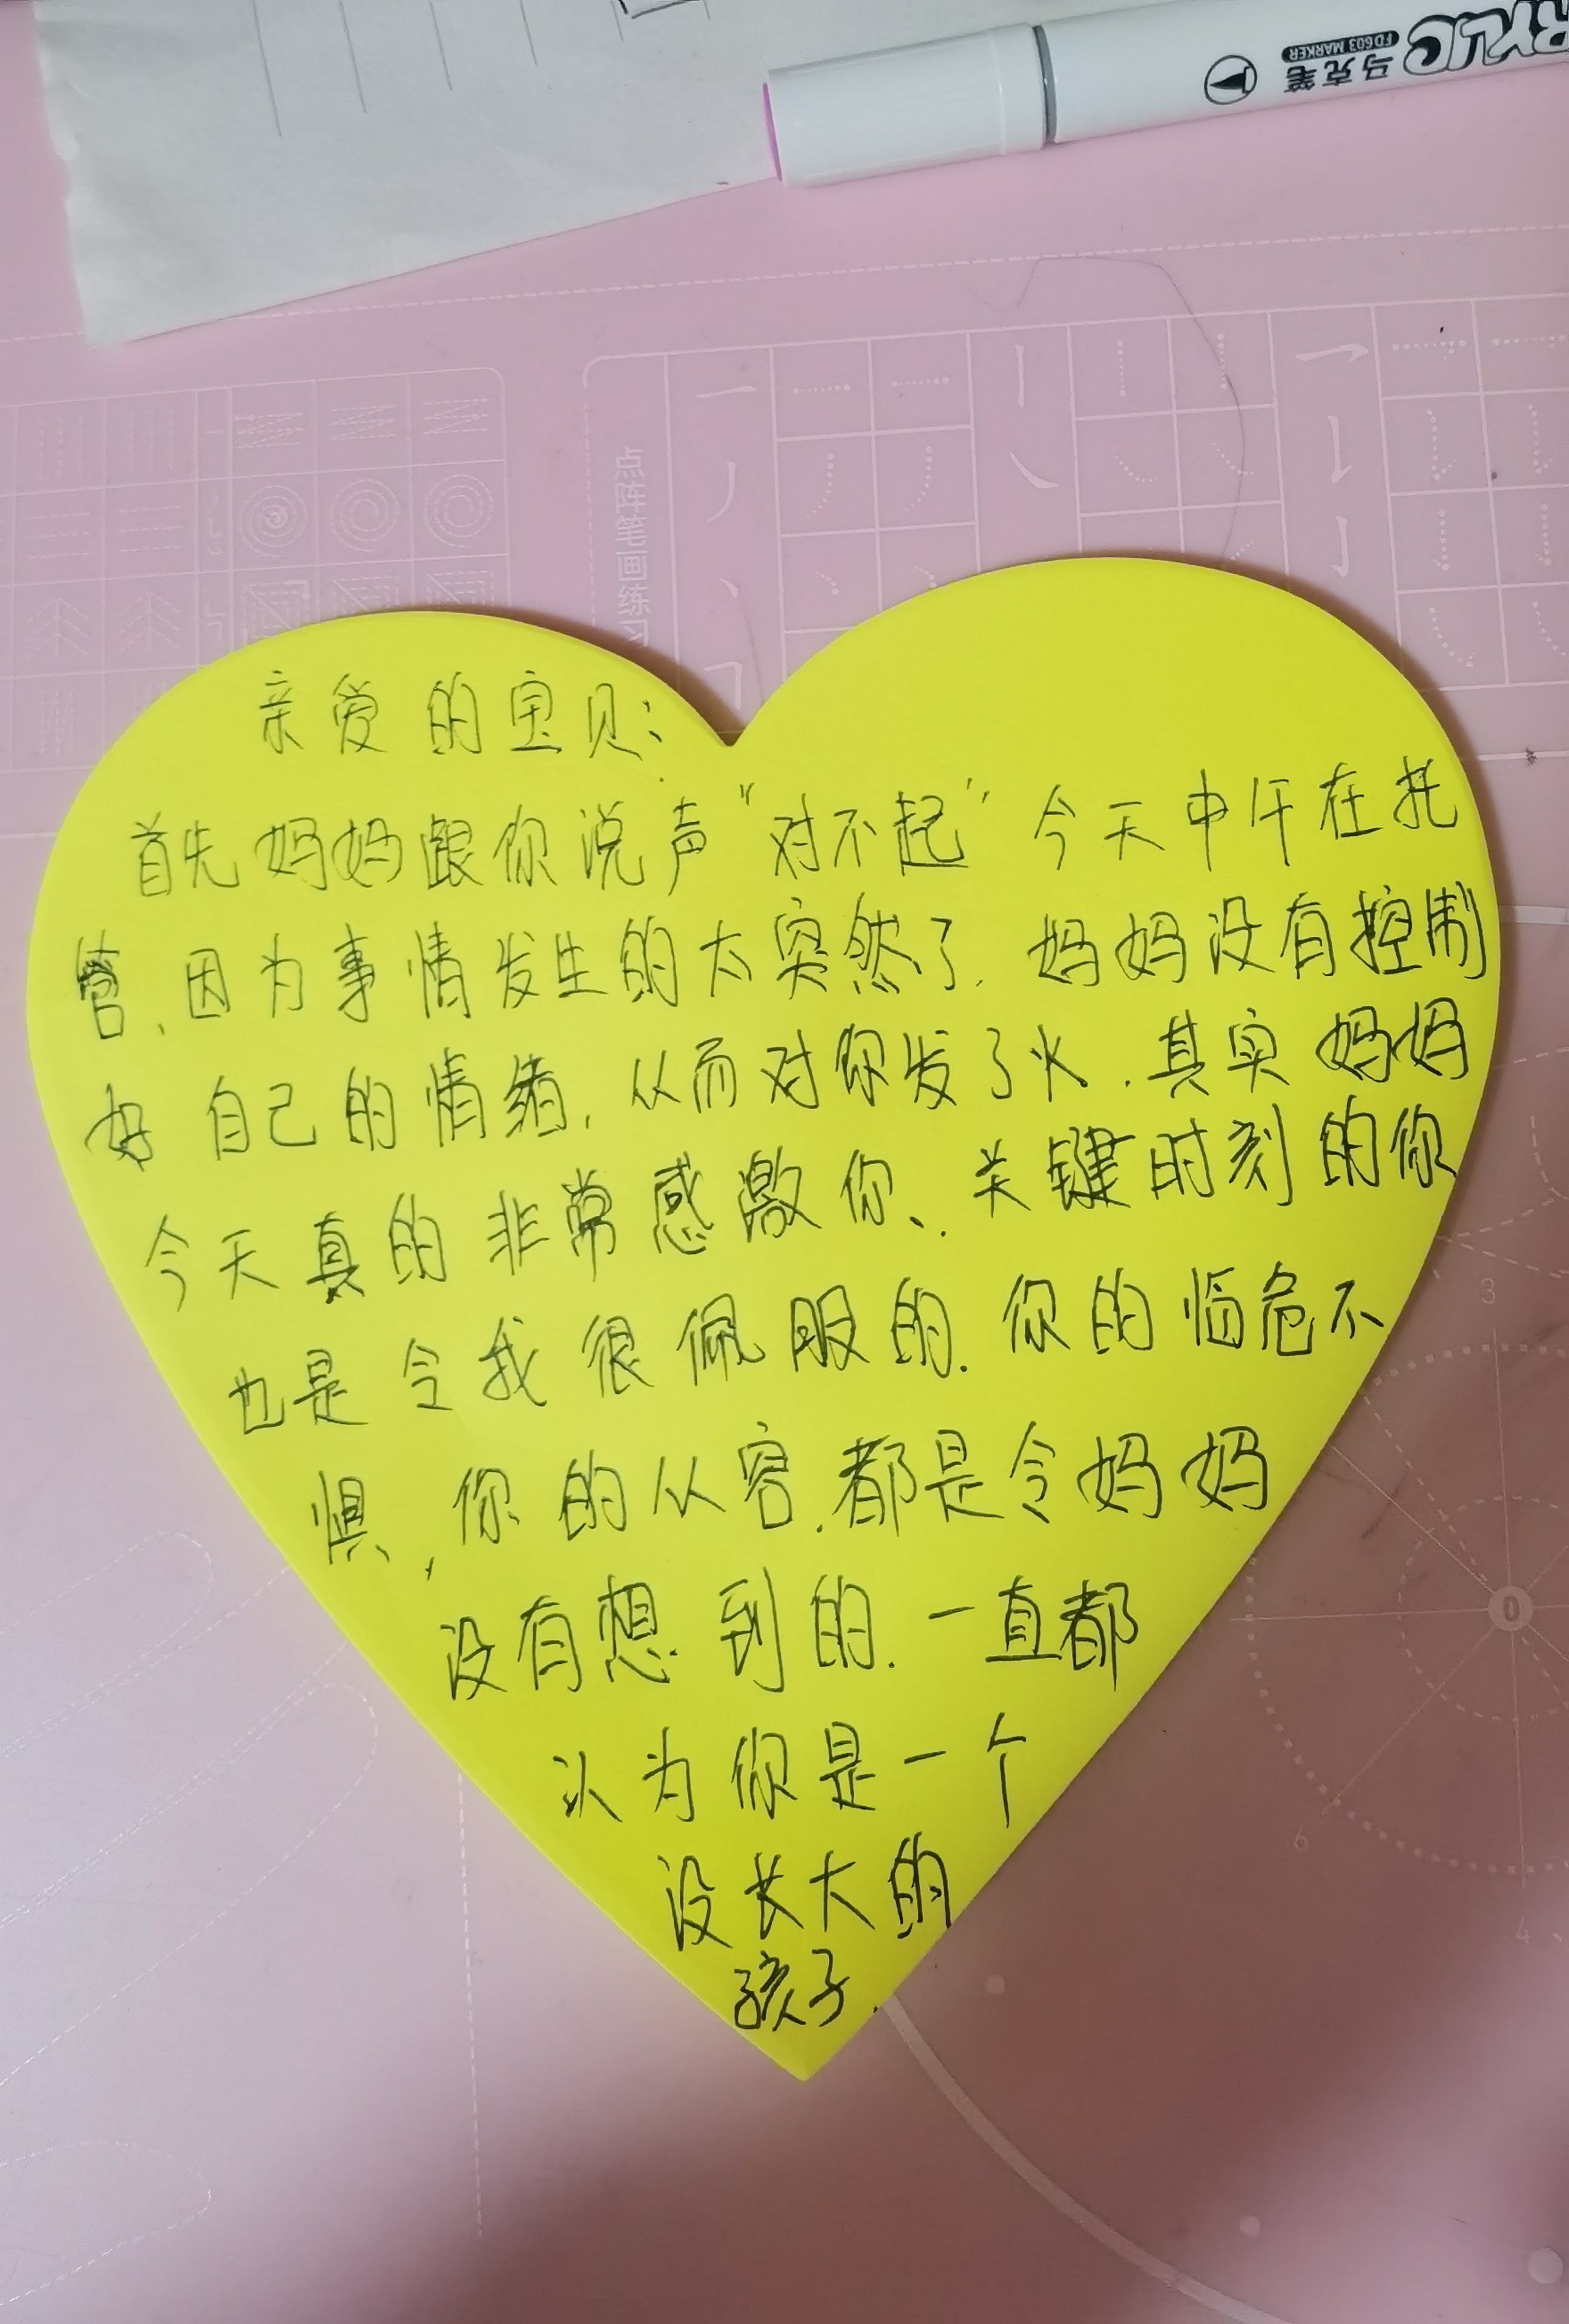 RYLIC
FD603 MARKER
马克笔
点阵笔画练习
亲爱的宝贝：
首先妈妈跟你说声"对不起"今天中午在托
管、因为事情发生的太突然了.妈妈没有控制
好自己的情绪,从而对你发了火.其实妈妈
今天真的非常感激你、关键时刻的你
也是令我很佩服的.你的临危不
惧,你的从容.都是令妈妈
没有想到的.一直都
认为你是一个
没长大的
孩子.
3
0
6
4